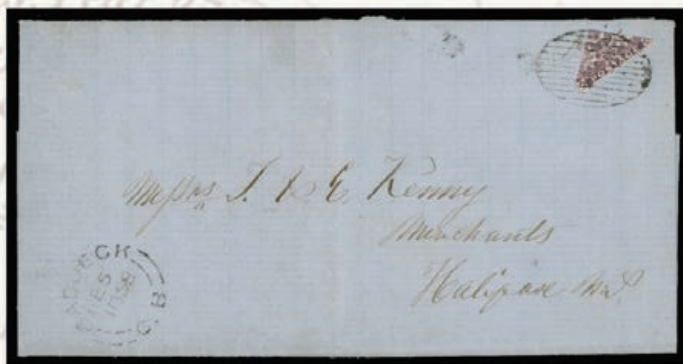 Messrs T. & E. Kenny
Merchants
Halifax N.S.
BADDECK
1858
C.B